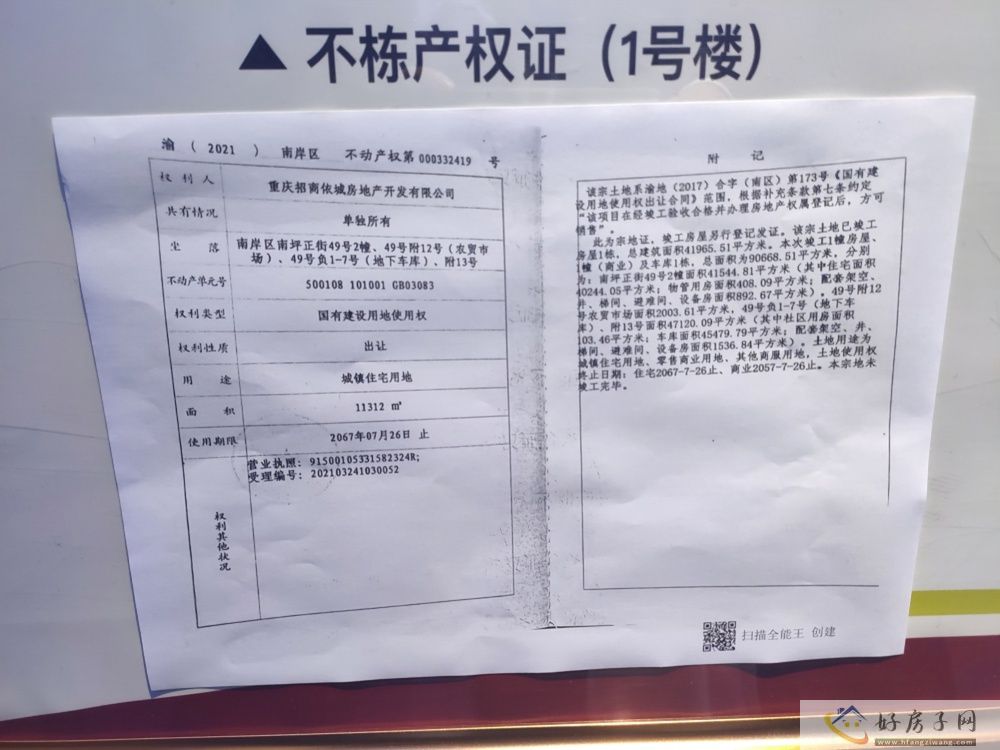 ▲ 不栋产权证（1号楼）
渝 （ 2021 ） 南岸区 不动产权第 000332419 号
权利人 重庆招商依城房地产开发有限公司
共有情况 单独所有
坐落 南岸区南坪正街49号2幢、49号附12号（农贸市
场）、49号负1-7号（地下车库）、附13号
不动产单元号 500108 101001 GB03083
权利类型 国有建设用地使用权
权利性质 出让
用途 城镇住宅用地
面积 11312 ㎡
使用期限 2067年07月26日 止
营业执照：91500105331582324R;
受理编号：202103241030052
权利其他状况
附 记
该宗土地系渝地（2017）合字（南区）第173号《国有建
设用地使用权出让合同》范围，根据补充条款第七条约定
“该项目在经竣工验收合格并办理房地产权属登记后，方可
销售”。
此为宗地证，竣工房屋另行登记发证。该宗土地已竣工
房屋1栋，总建筑面积41965.51平方米。本次竣工1幢房屋、
1幢（商业）及车库1栋，总面积为90668.51平方米，分别
为：南坪正街49号2幢面积41544.81平方米（其中住宅面积
40244.05平方米；物管用房面积408.09平方米；配套架空、
井、梯间、避难间、设备房面积892.67平方米）。49号附12
号农贸市场面积2003.61平方米，49号负1-7号（地下车
库）、附13号面积47120.09平方米（其中社区用房面积
103.46平方米；车库面积45479.79平方米；配套架空、井、
梯间、避难间、设备房面积1536.84平方米）。土地用途为
城镇住宅用地、零售商业用地、其他商服用地，土地使用权
终止日期：住宅2067-7-26止、商业2057-7-26止。本宗地未
竣工完毕。
扫描全能王 创建
好房子网
www.hfangziwang.com